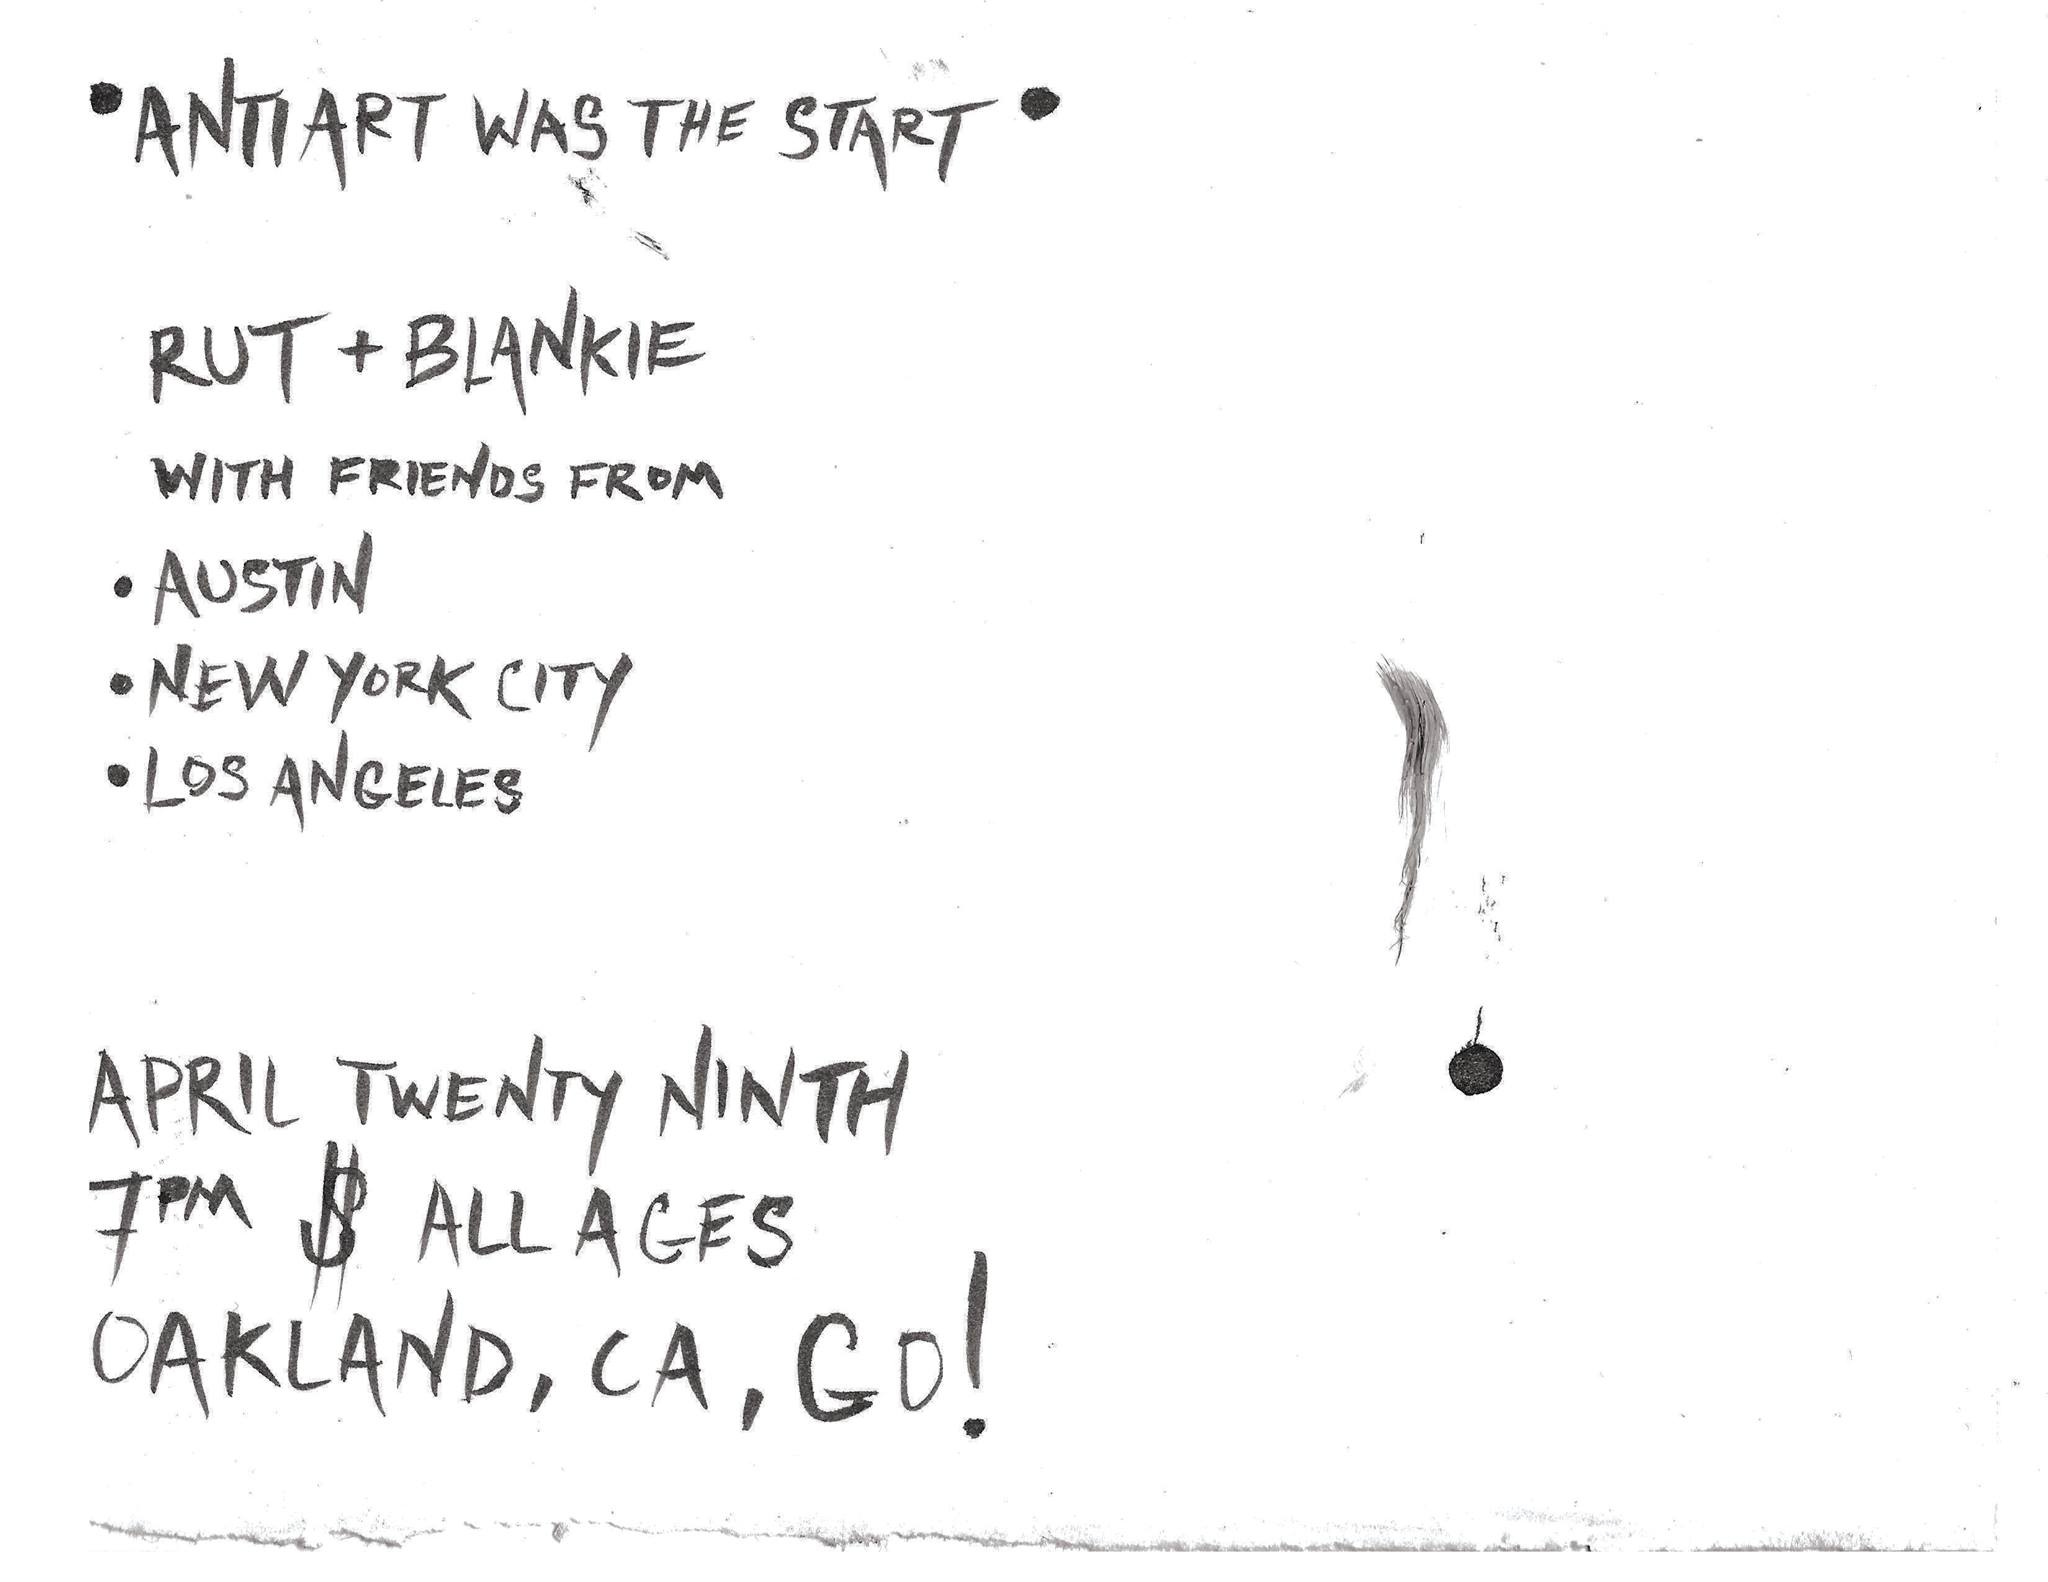 • ANTI ART WAS THE START •
RUT + BLANKIE
WITH FRIENDS FROM
• AUSTIN
• NEW YORK CITY
• LOS ANGELES
APRIL TWENTY NINTH
7PM $ ALL AGES
OAKLAND, CA, GO!